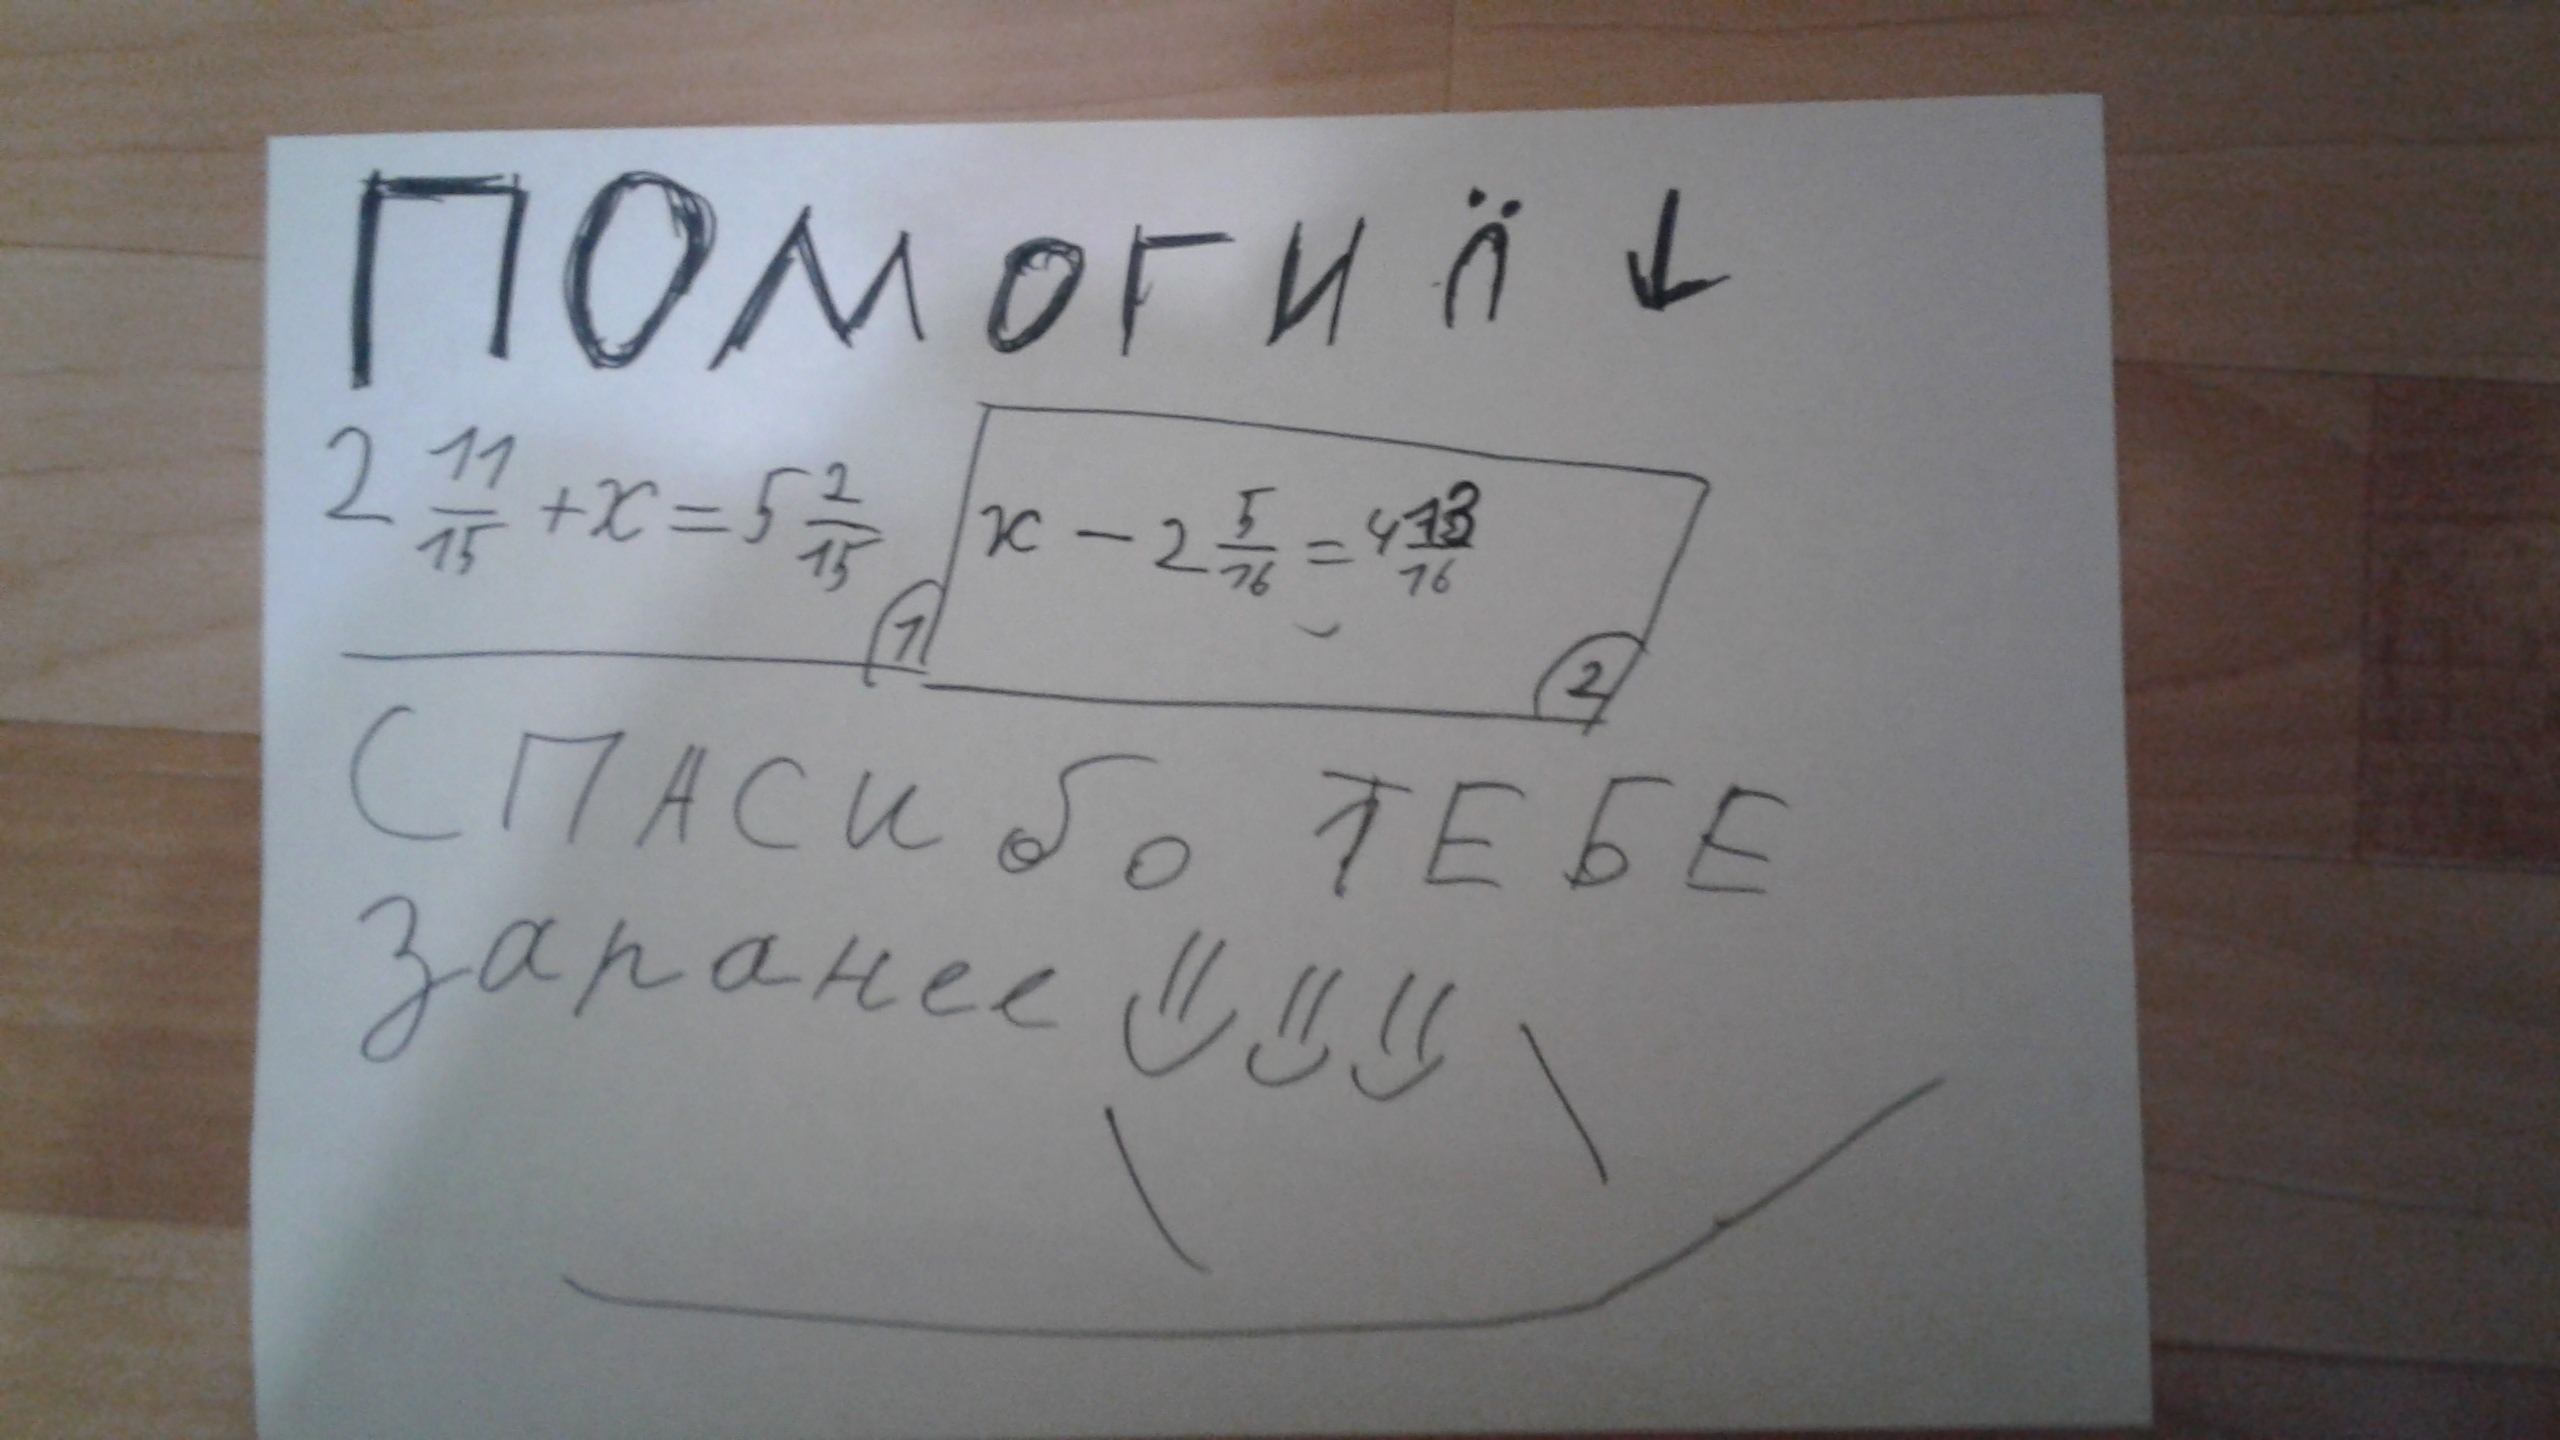 ПОМОГИ ↓
2 11/15 + x = 5 2/15
1
x - 2 5/16 = 4 13/16
2
СПАСИбо ТЕБЕ
Заранее